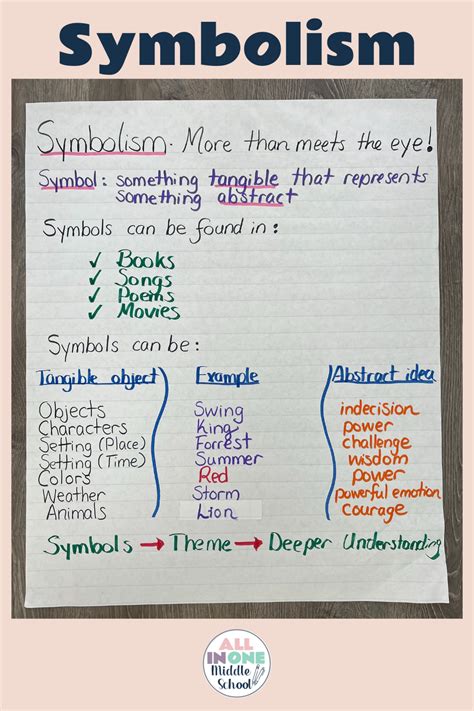 Symbolism
Symbolism- More than meets the eye!
Symbol: something tangible that represents
something abstract
Symbols can be found in:
✓ Books
✓ Songs
✓ Poems
✓ Movies
Symbols can be:
Tangible object Example Abstract idea
Objects Swing indecision
Characters King power
Setting (Place) Forrest challenge
Setting (Time) Summer wisdom
Colors Red power
Weather Storm powerful emotion
Animals Lion courage
Symbols → Theme → Deeper Understanding
ALL
IN ONE
Middle
School